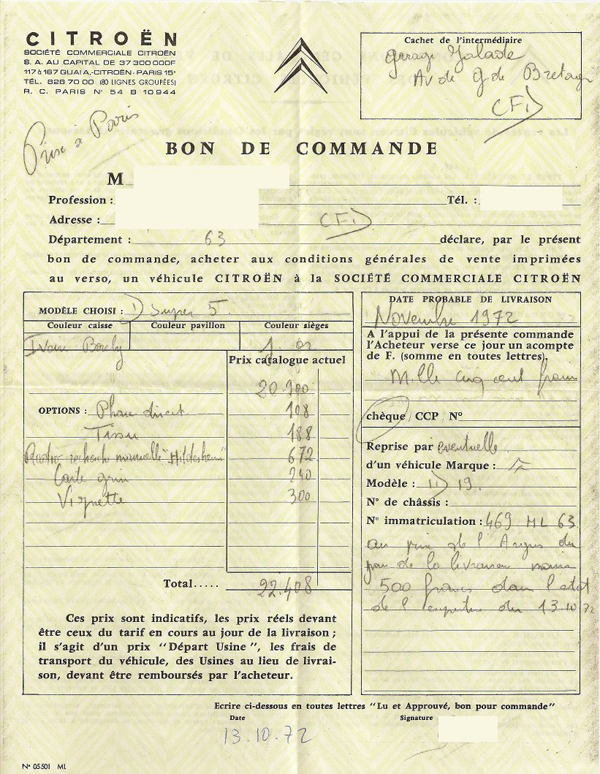 CITROËN
SOCIÉTÉ COMMERCIALE CITROËN
S. A. AU CAPITAL DE 37 300 000F
117 à 167 QUAI A.-CITROËN - PARIS 15e
TÉL. 828 70 00 (80 LIGNES GROUPÉES)
R. C. PARIS N° 54 B 10944
Cachet de l'intermédiaire
garage
Av de g. de Bretagne
(CFi)
Prise à Paris
BON DE COMMANDE
M
Profession :
Tél. :
Adresse : (CFi)
Département : 63 déclare, par le présent
bon de commande, acheter aux conditions générales de vente imprimées
au verso, un véhicule CITROËN à la SOCIÉTÉ COMMERCIALE CITROËN
MODÈLE CHOISI : D Super 5.
Couleur caisse Couleur pavillon Couleur sièges
Ivoire
Prix catalogue actuel
20.900
OPTIONS : Phare direct 108
Tissu 188
recherche manuelle 672
Carte grise 240
Vignette 300
Total..... 22.408
Ces prix sont indicatifs, les prix réels devant
être ceux du tarif en cours au jour de la livraison ;
il s'agit d'un prix "Départ Usine", les frais de
transport du véhicule, des Usines au lieu de livrai-
son, devant être remboursés par l'acheteur.
DATE PROBABLE DE LIVRAISON
Novembre 1972
A l'appui de la présente commande
l'Acheteur verse ce jour un acompte
de F. (somme en toutes lettres).
Mille cinq cent francs
chèque CCP N°
Reprise par eventuelle
d'un véhicule Marque :
Modèle : ID 19.
N° de châssis :
N° immatriculation : 469 HL 63
au prix de l'Argus du
jour de la livraison moins
500 francs dans l'état
de l'expertise du 13-10-72
Ecrire ci-dessous en toutes lettres "Lu et Approuvé, bon pour commande"
Date Signature
13.10.72
N° 05501 ML